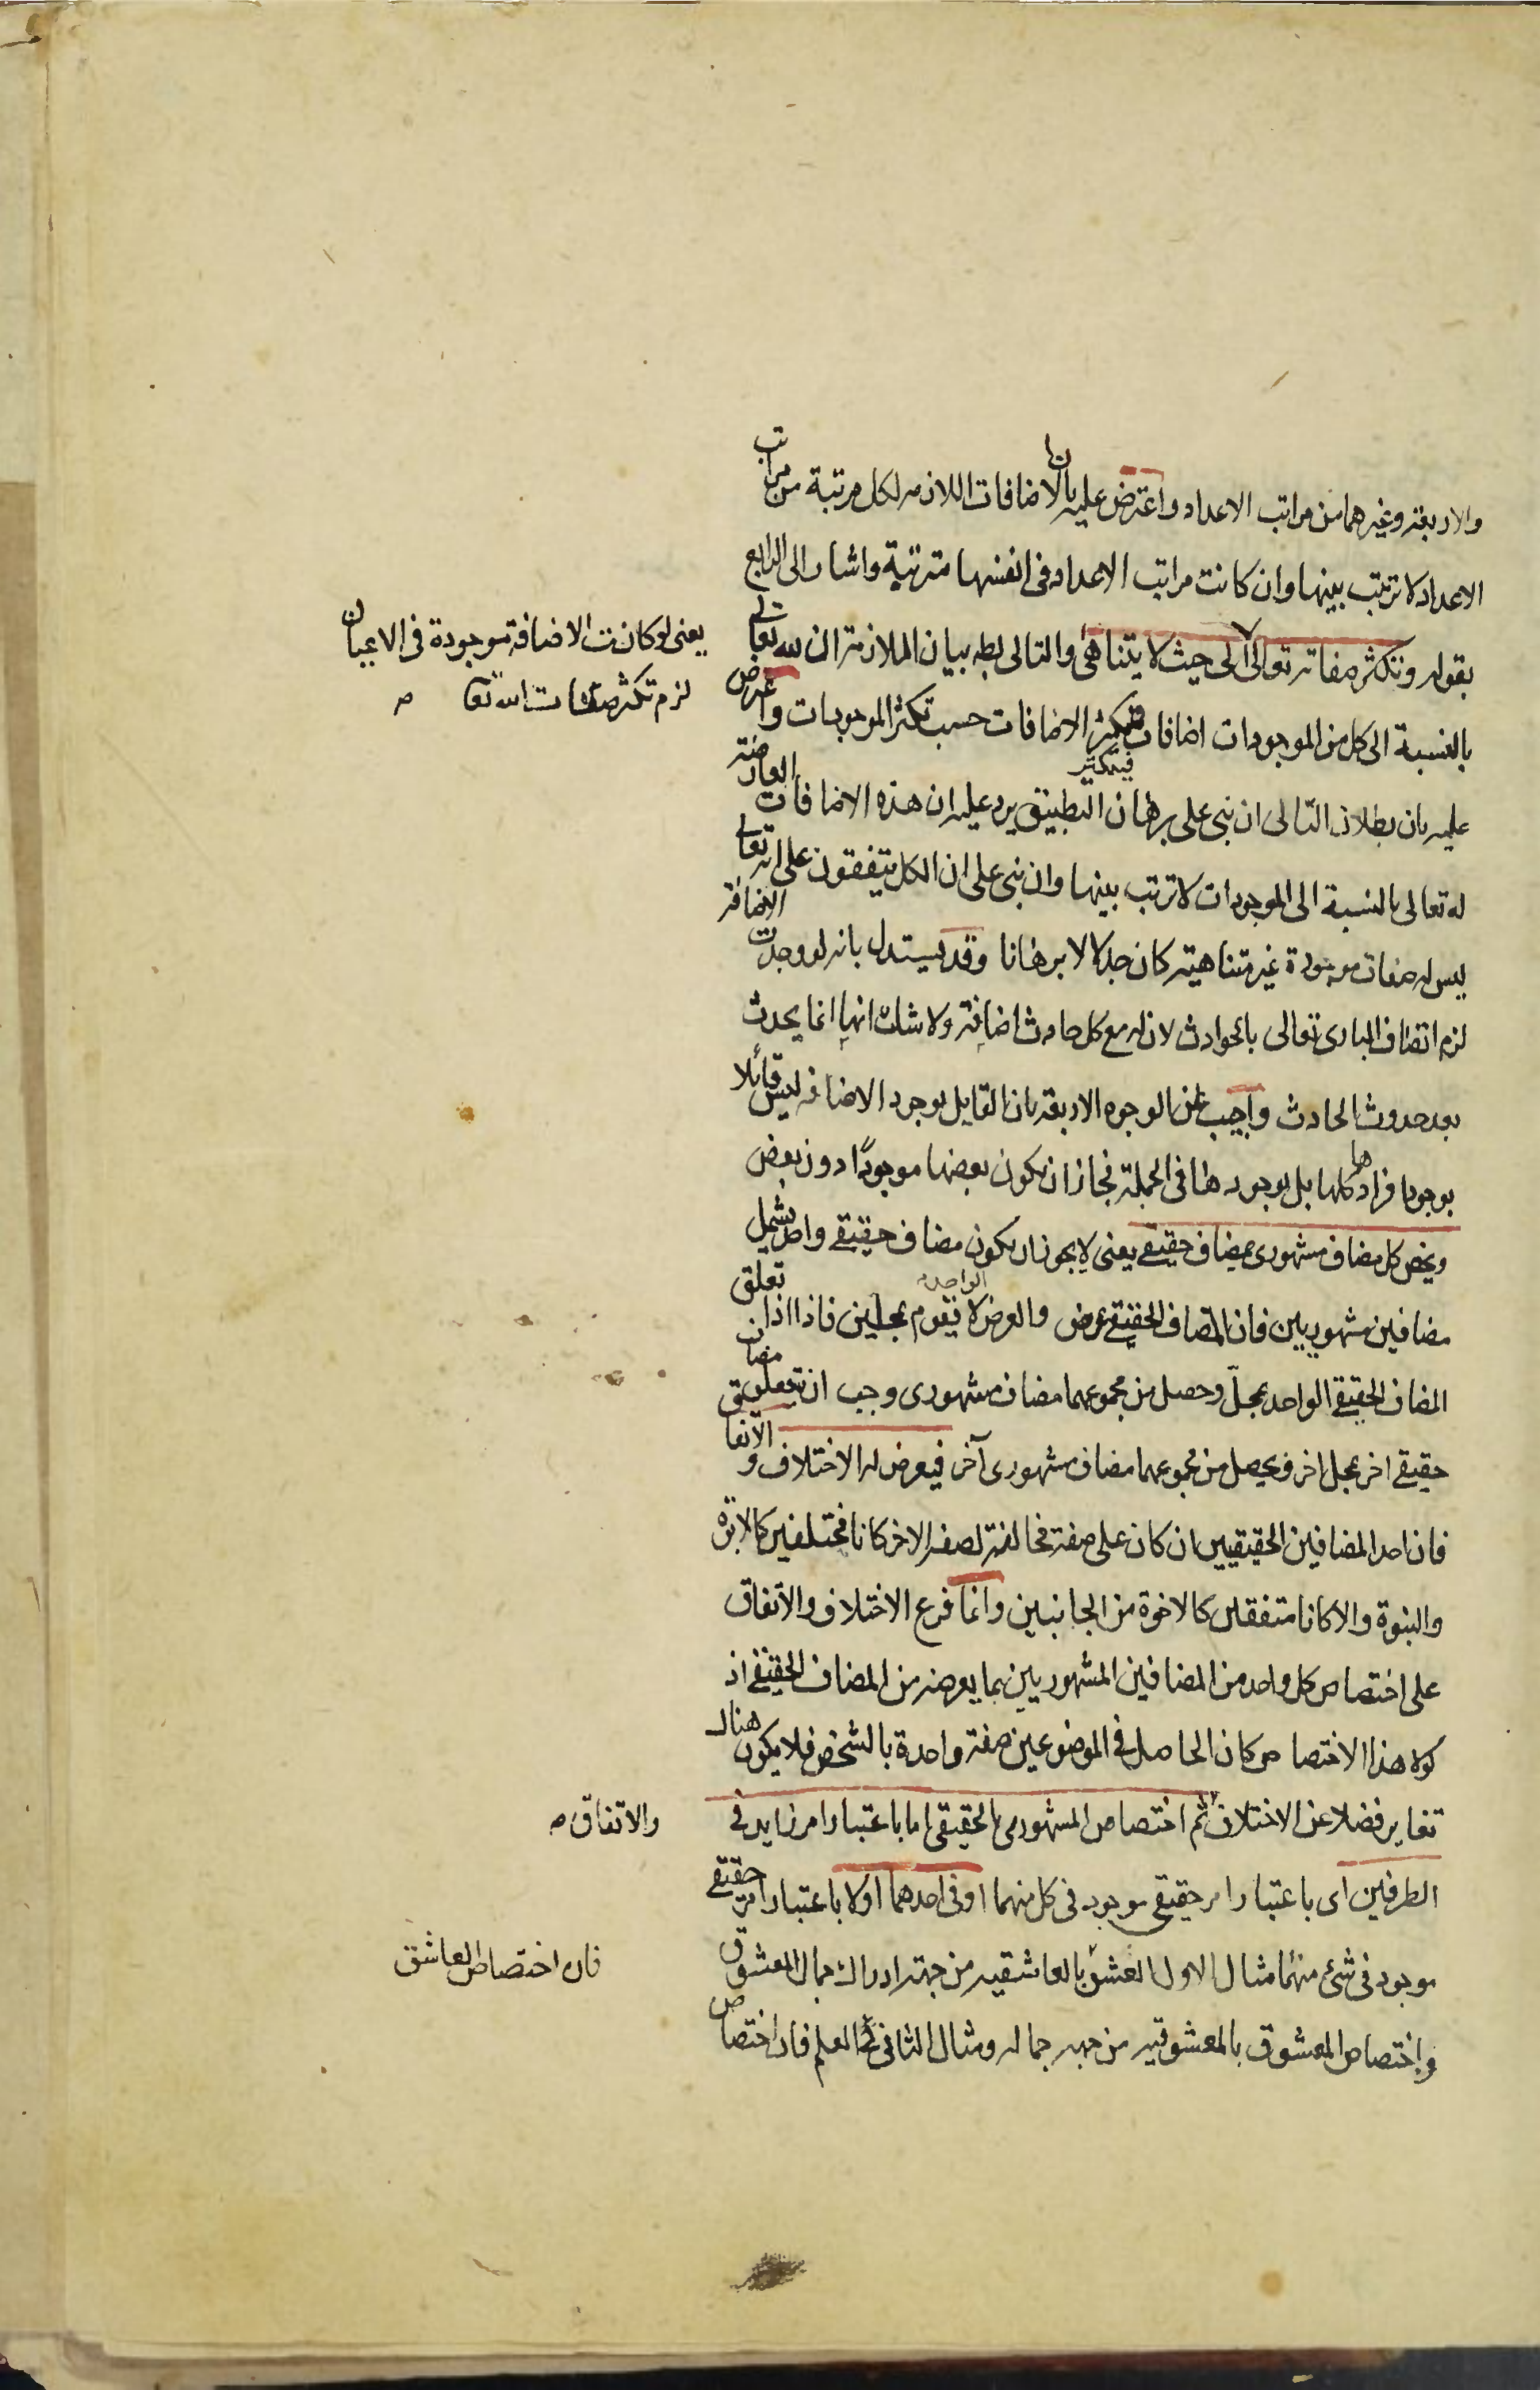 والاربعة وغيرهما من مراتب الاعداد واعترض عليه بان الاضافات اللازمة لكل مرتبة من مراتب
الاعداد لا ترتب بينها وان كانت مراتب الاعداد فى انفسها مترتبة واشار الى الرابع
بقوله وتتكثر صفاته تعالى الى حيث لا يتناهى والتالى بطه بيان الملازمة ان لله تعالى
يعنى لو كانت الاضافة موجودة فى الاعيان
لزم تكثر صفات الله تعا
بالنسبة الى كل من الموجودات اضافات فيتكثر الاضافات حسب تكثر الموجودات واعترض
فيتكثر
عليه بان بطلان التالى ان بنى على برهان التطبيق يرد عليه ان هذه الاضافات العارضة
له تعالى بالنسبة الى الموجودات لا ترتب بينها وان بنى على ان الكل متفقون على انه تعالى
ليس له صفات موجودة غير متناهية كان جدلا لا برهانا وقد يستدل بانه لو وجدت الاضافة
لزم اتصاف البارى تعالى بالحوادث لان له مع كل حادث اضافة ولا شك انها انما يحدث
بعد حدوث الحادث واجيب عن الوجوه الاربعة بان القايل بوجود الاضافه ليس قائلا
بوجود افرادها كلها بل بوجودها فى الجملة فجاز ان يكون بعضها موجودًا دون بعض
ويخص كل مضاف مشهورى بمضاف حقيقى يعنى لا يجوز ان يكون مضاف حقيقى واحد يشمل
مضافين مشهوريين فان المضاف الحقيقى عرض والعرض الواحد لا يقوم بمحلين فاذا اذا تعلق
المضاف الحقيقى الواحد بمحل وحصل من مجموعهما مضاف مشهورى وجب ان يتعلق مضاف
حقيقى اخر بمحل اخر ويحصل من مجموعهما مضاف مشهورى آخر فيعرض له الاختلاف و الاتفا
فان احد المضافين الحقيقيين ان كان على صفة مخالفة لصفه الاخر كانا مختلفين كالابوة
والبنوة والا كانا متفقين كالاخوة من الجانبين وانما فرع الاختلاف والاتفاق
على اختصاص كل واحد من المضافين المشهوريين بما يعرضه من المضاف الحقيقى اذ
لولا هذا الاختصاص كان الحاصل فى الموضوعين صفة واحدة بالشخص فلا يكون هناك
تغاير فضلا عن الاختلاف ثم اختصاص المشهورى بالحقيقى اما باعتبار امر زايد فى
والاتفاق
الطرفين اى باعتبار امر حقيقى موجود فى كل منهما او فى احدهما او لا باعتبار امر حقيقى
موجود فى شئ منهما مثال الاول العشق بالعاشقيه من جهة ادراك جمال المعشوق
فان اختصاص العاشق
واختصاص المعشوق بالمعشوقيه من جهه جماله ومثال الثانى العلم فان اختصاص